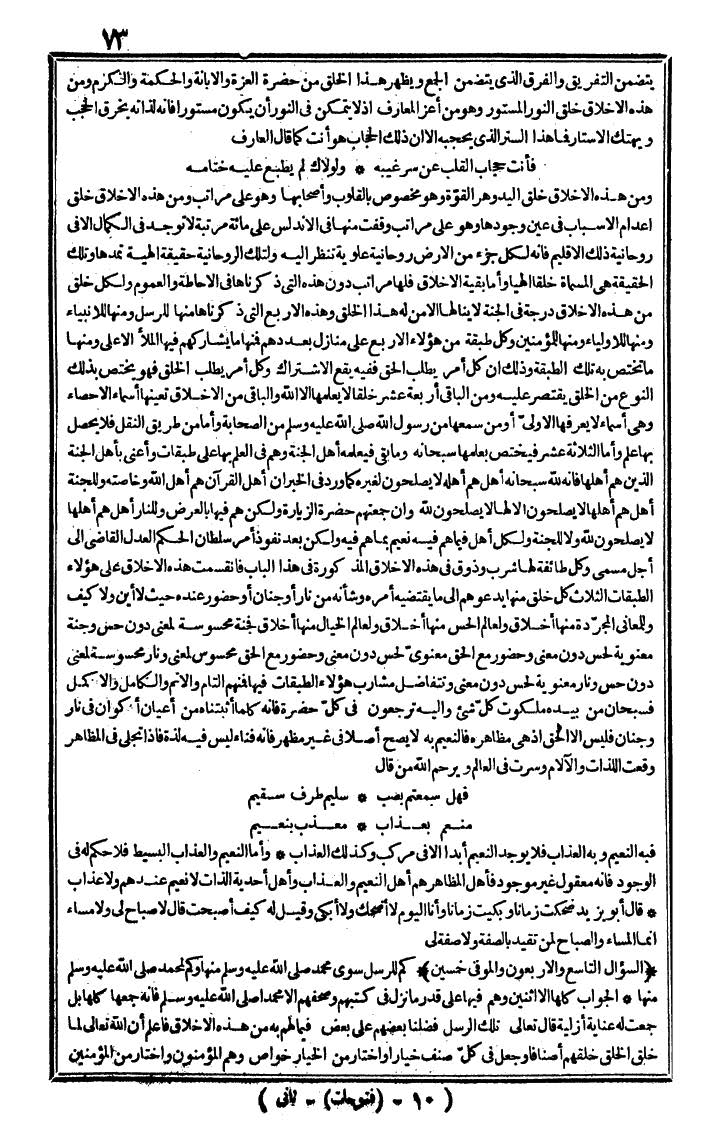 ٧٣
يتضمن التفريق والفرق الذى يتضمن الجمع ويظهر هذا الخلق من حضرة العزة والابانة والحكمة والتكرم ومن
هذه الاخلاق خلق النور المستور وهو من أعز المعارف اذلا يتمكن فى النور أن يكون مستورا فانه لذاته يخرق الحجب
ويهتك الاستار فما هذا الستر الذى يحجبه الا ان ذلك الحجاب هو أنت كما قال العارف
فأنت حجاب القلب عن سر غيبه * ولولاك لم يطبع عليه ختامه
ومن هذه الاخلاق خلق اليد وهر القوّة وهو مخصوص بالقلوب وأصحابها وهو على مراتب ومن هذه الاخلاق خلق
اعدام الاسباب فى عين وجودها وهو على مراتب وقفت منها فى الاندلس على مائة مرتبة لا توجد فى الكمال الا فى
روحانية ذلك الاقليم فانه لكل جزء من الارض روحانية علوية تنظر اليه ولتلك الروحانية حقيقة الهية تمدها وتلك
الحقيقة هى المسماة خلقا الهيا وأما بقية الاخلاق فلها مراتب دون هذه التى ذكرناها فى الاحاطة والعموم ولكل خلق
من هذه الاخلاق درجة فى الجنة لا ينالها الا من له هذا الخلق وهذه الاربع التى ذكرناها منها للرسل ومنها للانبياء
ومنها للاولياء ومنها للمؤمنين وكل طبقة من هؤلاء الاربع على منازل بعددهم فمنها ما يشاركهم فيها الملأ الاعلى ومنها
ما تختص به تلك الطبقة وذلك ان كل أمر يطلب الحق ففيه يقع الاشتراك وكل أمر يطلب الخلق فهو يختص بذلك
النوع من الخلق يقتصر عليه ومن الباقى أربعة عشر خلقا لا يعلمها الا الله والباقى من الاخلاق تعينها أسماء الاحصاء
وهى أسماء لا يعرفها الا ولىّ أو من سمعها من رسول الله صلى الله عليه وسلم من الصحابة وأما من طريق النقل فلا يحصل
بها علم وأما الثلاثة عشر فيختص بعلمها سبحانه وما بقى فيعلمه أهل الجنة وهم فى العلم بها على طبقات وأعنى بأهل الجنة
الذين هم أهلها فانه لله سبحانه أهل هم أهله لا يصلحون لغيره كما ورد فى الخبر ان أهل القرآن هم أهل الله وخاصته وللجنة
أهل هم أهلها لا يصلحون الا لها لا يصلحون لله وان جمعتهم حضرة الزيارة ولكن هم فيها بالعرض وللنار أهل هم أهلها
لا يصلحون لله ولا للجنة ولكل أهل فيما هم فيه نعيم بما هم فيه ولكن بعد نفوذ أمر سلطان الحكم العدل القاضى الى
أجل مسمى وكل طائفة لها شرب وذوق فى هذه الاخلاق المذكورة فى هذا الباب فانقسمت هذه الاخلاق على هؤلاء
الطبقات الثلاث كل خلق منها يدعوهم الى ما يقتضيه أمره وشأنه من نار أو جنان أو حضور عنده حيث لا أين ولا كيف
وللمعانى المجرّدة منها أخلاق ولعالم الحس منها أخلاق ولعالم الخيال منها أخلاق فجنة محسوسة لمعنى دون حس وجنة
معنوية لحس دون معنى وحضور مع الحق معنوىّ لحس دون معنى وحضور مع الحق محسوس لمعنى ونار محسوسة لمعنى
دون حس ونار معنوية لحس دون معنى وتتفاضل مشارب هؤلاء الطبقات فيها فمنهم التام والاتم والكامل والاكمل
فسبحان من بيده ملكوت كلّ شئ واليه ترجعون فى كلّ حضرة فانه كلما أثبتناه من أعيان أكوان فى نار
وجنان فليس الا الحق اذ هى مظاهره فالنعيم به لا يصح أصلا فى غير مظهر فانه فناء ليس فيه لذة فاذا تجلى فى المظاهر
وقعت اللذات والآلام وسرت فى العالم ويرحم الله من قال
فهل سمعتم بصب * سليم طرف سقيم
منعم بعذاب * معذب بنعيم
فبه النعيم وبه العذاب فلا يوجد النعيم أبدا الا فى مركب وكذلك العذاب * وأما النعيم والعذاب البسيط فلا حكم له فى
الوجود فانه معقول غير موجود فأهل المظاهر هم أهل النعيم والعذاب وأهل أحدية الذات لا نعيم عندهم ولا عذاب
* قال أبو يزيد ضحكت زمانا وبكيت زمانا وأنا اليوم لا أضحك ولا أبكى وقيل له كيف أصبحت قال لا صباح لى ولا مساء
انما المساء والصباح لمن تقيد بالصفة ولا صفة لى
﴿السؤال التاسع والاربعون والموفى خمسين﴾ كم للرسل سوى محمد صلى الله عليه وسلم منها وكم لمحمد صلى الله عليه وسلم
منها * الجواب كلها الا اثنين وهم فيها على قدر ما نزل فى كتبهم وصحفهم الا محمدا صلى الله عليه وسلم فانه جمعها كلها بل
جمعت له عناية أزلية قال تعالى تلك الرسل فضلنا بعضهم على بعض فيما لهم به من هذه الاخلاق فاعلم أن الله تعالى لما
خلق الخلق خلقهم أصنافا وجعل فى كلّ صنف خيارا واختار من الخيار خواص وهم المؤمنون واختار من المؤمنين
( ١٠ - (فتوحات) - ثانى )